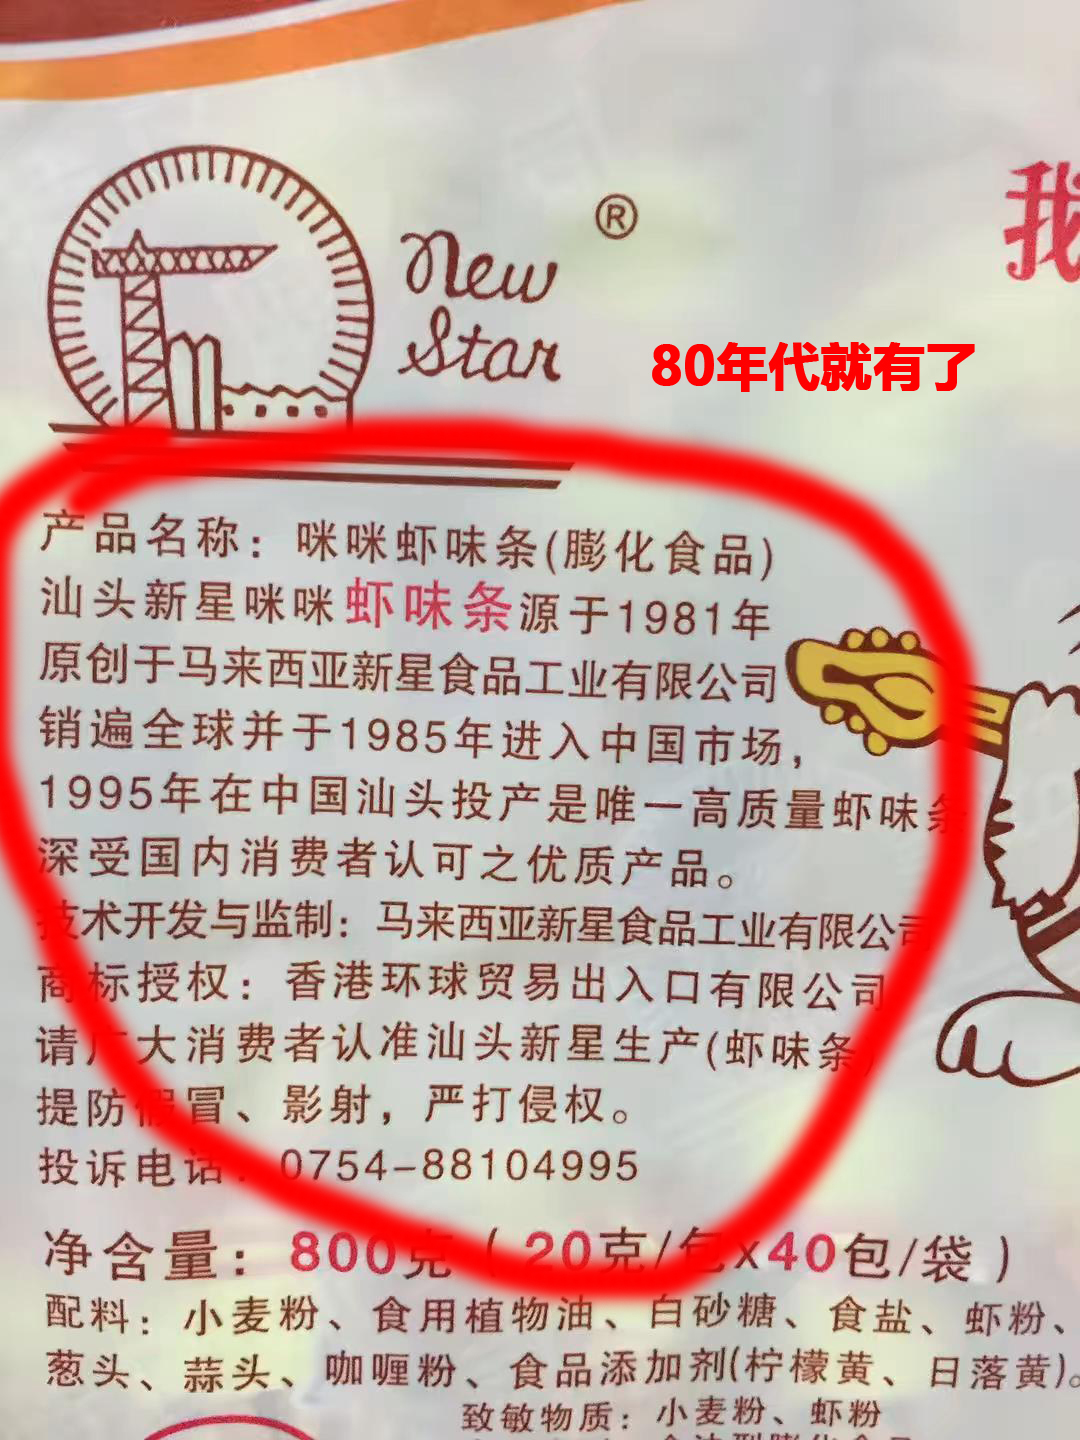 New
Star
®
我
80年代就有了
产品名称：咪咪虾味条(膨化食品)
汕头新星咪咪虾味条源于1981年
原创于马来西亚新星食品工业有限公司
销遍全球并于1985年进入中国市场，
1995年在中国汕头投产是唯一高质量虾味条
深受国内消费者认可之优质产品。
技术开发与监制：马来西亚新星食品工业有限公司
商标授权：香港环球贸易出入口有限公司
请广大消费者认准汕头新星生产(虾味条)
提防假冒、影射，严打侵权。
投诉电话：0754-88104995
净含量：800克（20克/包x40包/袋）
配料：小麦粉、食用植物油、白砂糖、食盐、虾粉、
葱头、蒜头、咖喱粉、食品添加剂(柠檬黄、日落黄)。
致敏物质：小麦粉、虾粉